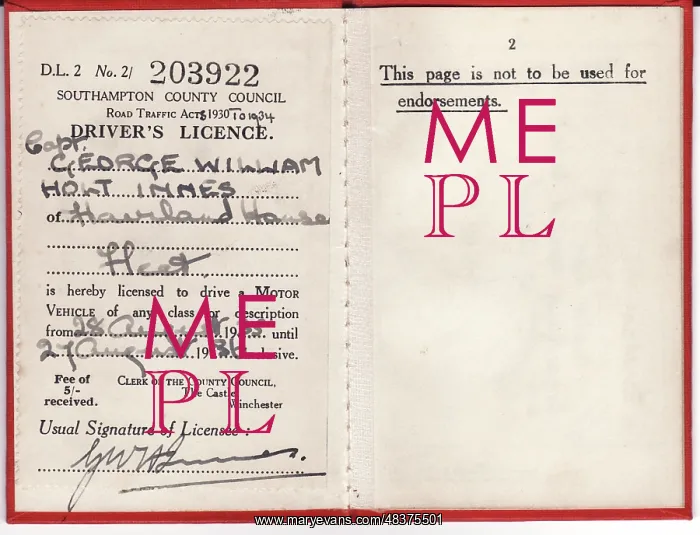 D.L. 2 No. 2/ 203922
SOUTHAMPTON COUNTY COUNCIL
ROAD TRAFFIC ACTS 1930 TO 1934
DRIVER'S LICENCE.
Capt.
GEORGE WILLIAM
HOLT INNES
of House
Fleet.
is hereby licensed to drive a MOTOR
VEHICLE of any class or description
from 28 August 19 until
27 August 19
Fee of
5/-
received.
CLERK OF THE COUNTY COUNCIL,
The Castle
Winchester
Usual Signature of Licensee :
2
This page is not to be used for
endorsements.
ME
PL
ME
PL
www.maryevans.com/48375501